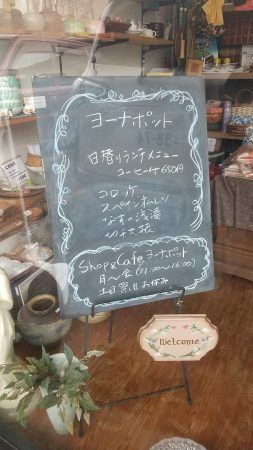 ヨーナポット
日替りランチメニュー
コーヒー付 650円
コロッケ
スペインオムレツ
なすの浅漬
切干大根
Shop&Cafe ヨーナポット
月〜金(11:00〜16:00)
土日祭日お休み
Welcome